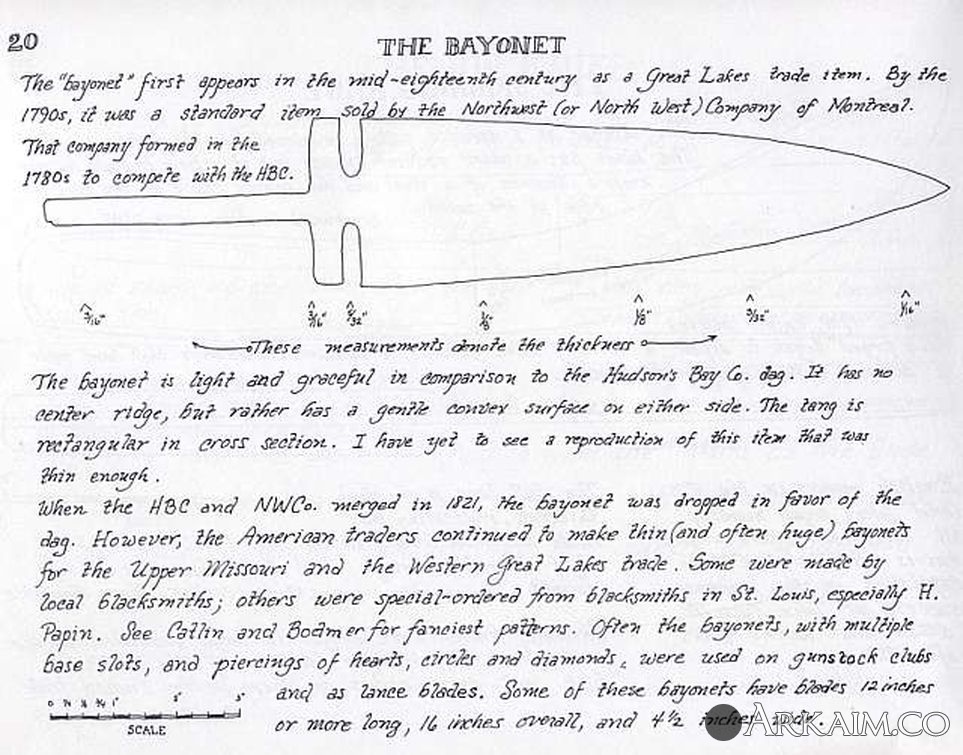 20
THE BAYONET
The "bayonet" first appears in the mid-eighteenth century as a Great Lakes trade item. By the
1790s, it was a standard item sold by the Northwest (or North West) Company of Montreal.
That company formed in the
1780s to compete with the HBC.
3/16" 3/16" 5/32" 1/8" 1/8" 3/32" 1/16"
These measurements denote the thickness
The bayonet is light and graceful in comparison to the Hudson's Bay Co. dag. It has no
center ridge, but rather has a gentle convex surface on either side. The tang is
rectangular in cross section. I have yet to see a reproduction of this item that was
thin enough.
When the HBC and NWCo. merged in 1821, the bayonet was dropped in favor of the
dag. However, the American traders continued to make thin (and often huge) bayonets
for the Upper Missouri and the Western Great Lakes trade. Some were made by
local blacksmiths; others were special-ordered from blacksmiths in St. Louis, especially H.
Papin. See Catlin and Bodmer for fanciest patterns. Often the bayonets, with multiple
base slots, and piercings of hearts, circles and diamonds, were used on gunstock clubs
and as lance blades. Some of these bayonets have blades 12 inches
or more long, 16 inches overall, and 4 1/2 inches wide.
0 1/4 1/2 3/4 1" 2" 3"
SCALE
ARKAIM.CO